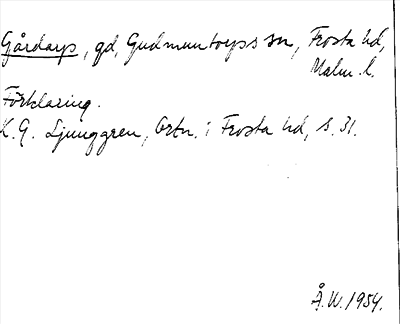 Gårdarp, gd, Gudmuntorps sn, Frosta hd,
Malm. l.
Förklaring.
K. G. Ljunggren, Ortn. i Frosta hd, s. 31.
Å.W. 1954.